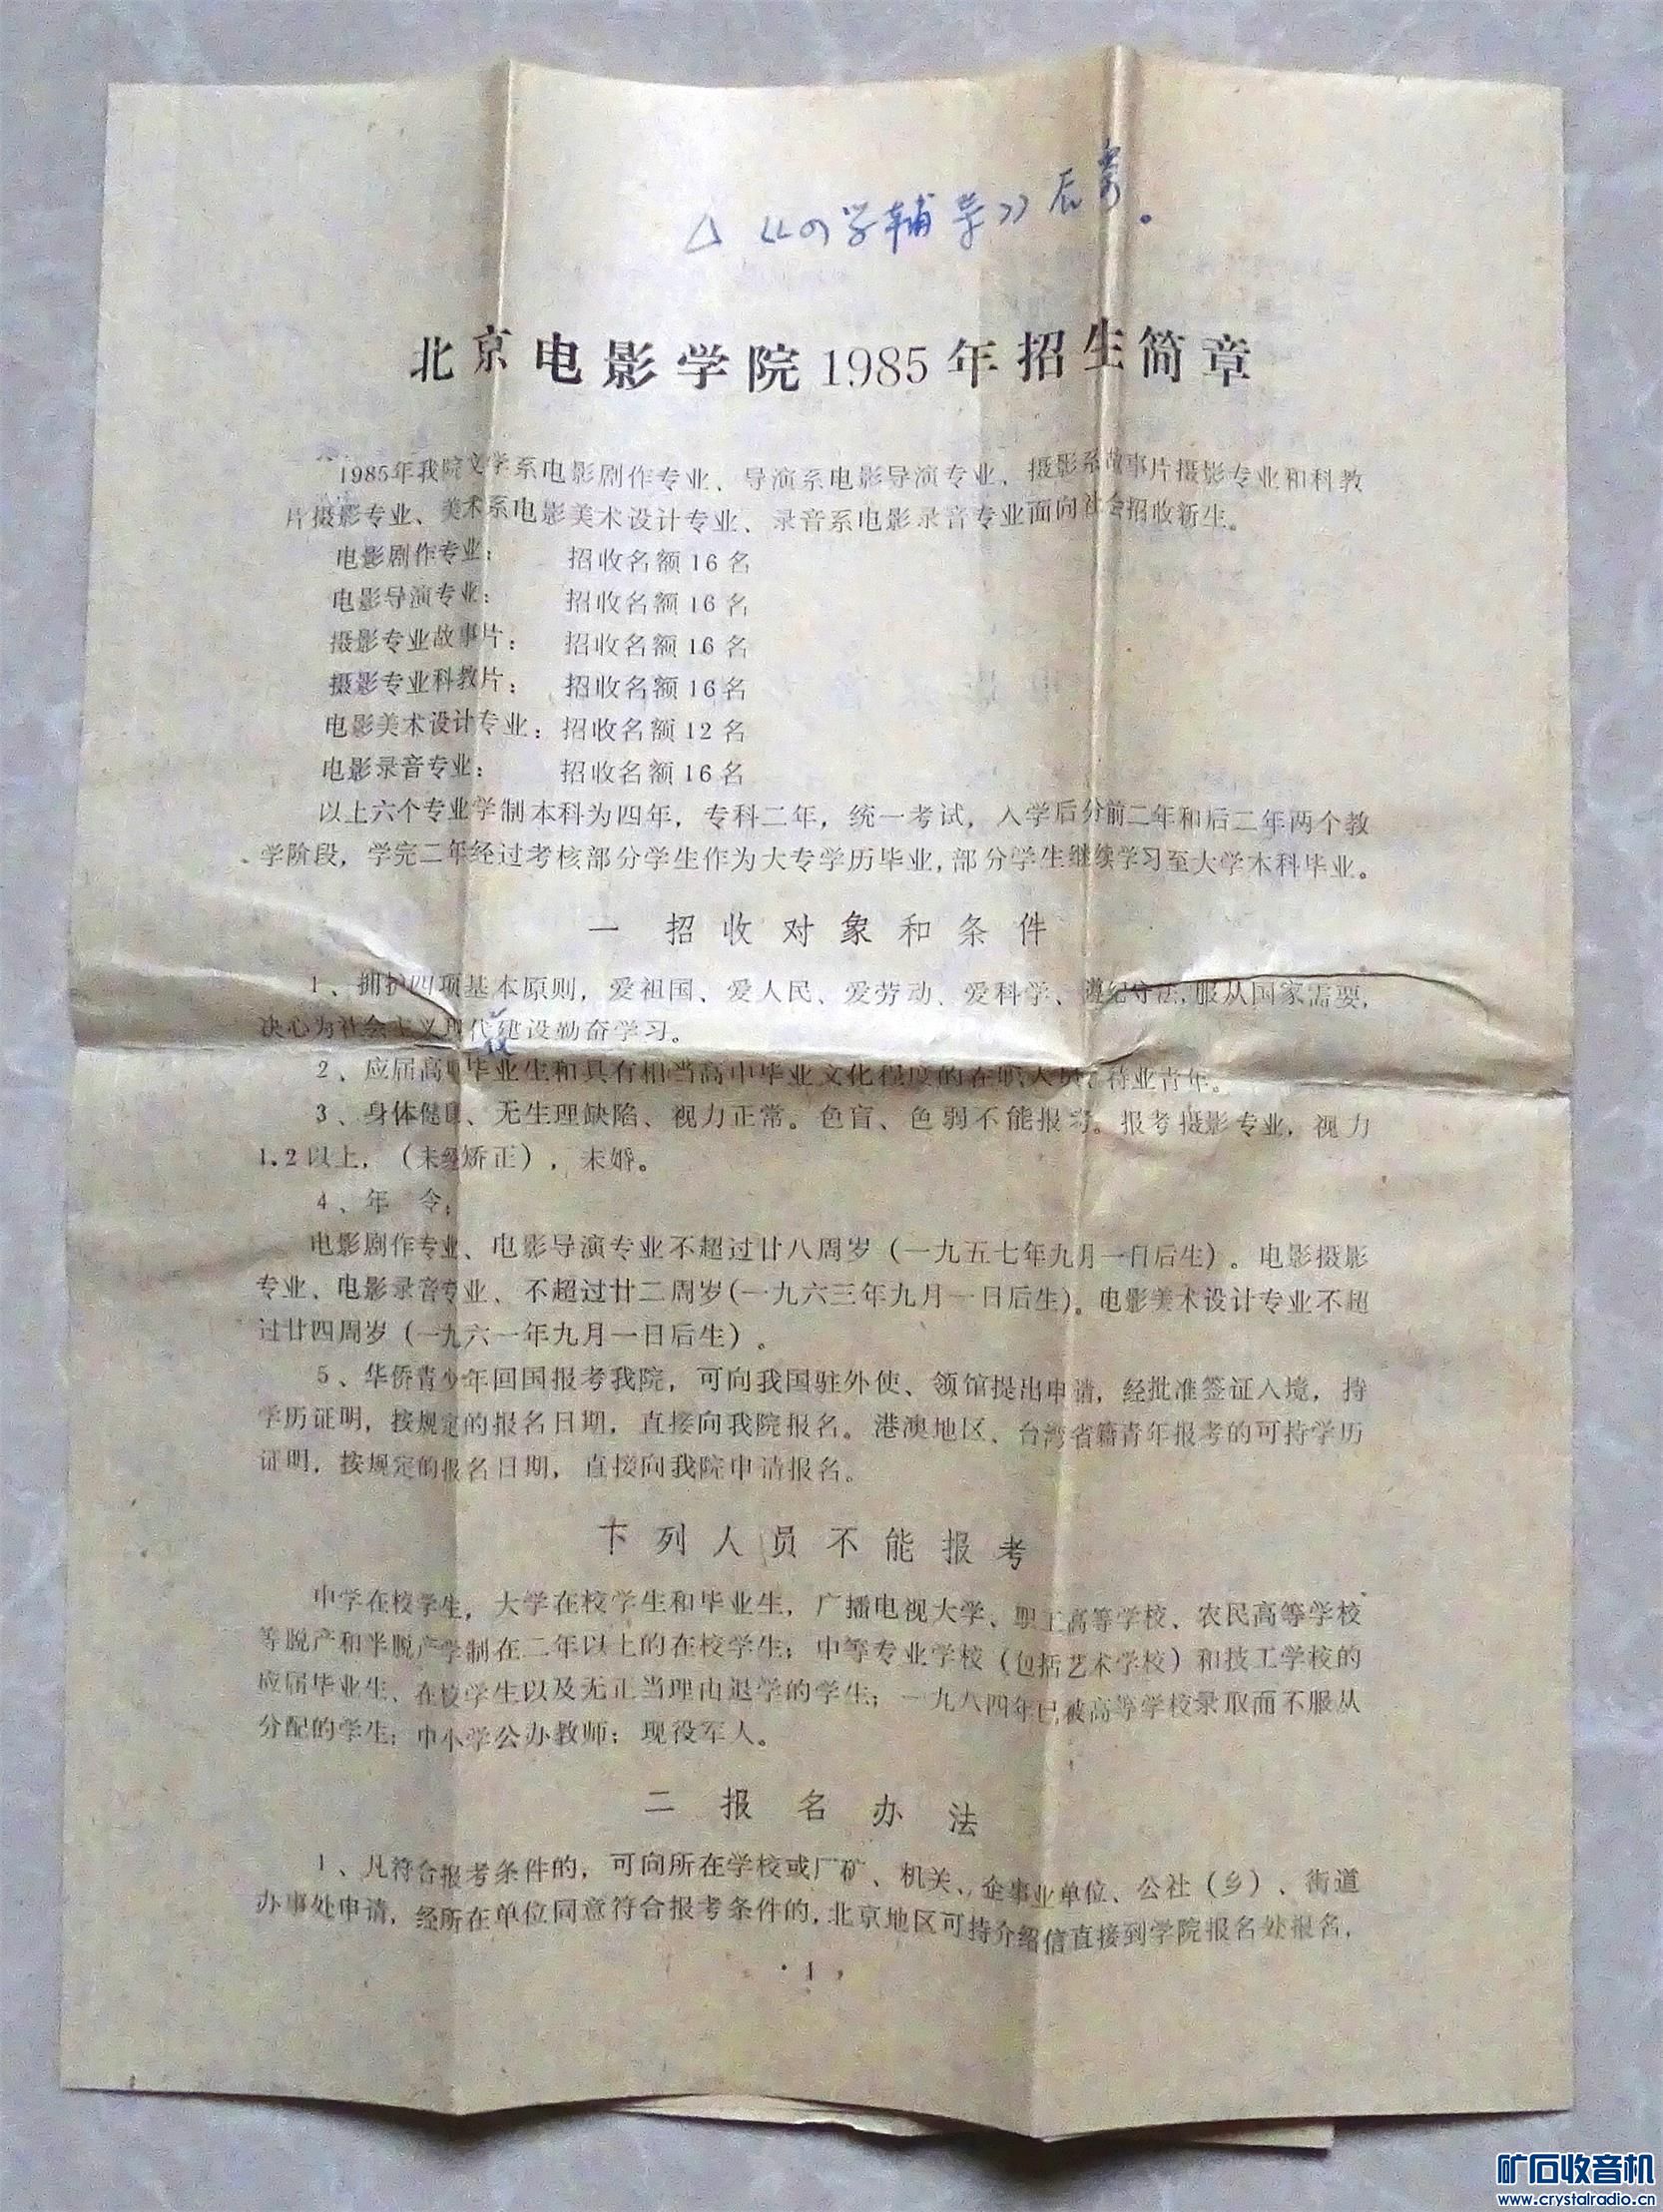 △《
学辅导》后
北京电影学院1985年招生简章
1985年我院文学系电影剧作专业、导演系电影导演专业、摄影系故事片摄影专业和科教
片摄影专业、美术系电影美术设计专业、录音系电影录音专业面向社会招收新生。
电影剧作专业： 招收名额16名
电影导演专业： 招收名额16名
摄影专业故事片： 招收名额16名
摄影专业科教片： 招收名额16名
电影美术设计专业：招收名额12名
电影录音专业： 招收名额16名
以上六个专业学制本科为四年，专科二年，统一考试，入学后分前二年和后二年两个教
学阶段，学完二年经过考核部分学生作为大专学历毕业，部分学生继续学习至大学本科毕业。
一 招收对象和条件
1、拥护四项基本原则，爱祖国、爱人民、爱劳动、爱科学、遵纪守法，服从国家需要，
决心为社会主义现代建设勤奋学习。
2、应届高中毕业生和具有相当高中毕业文化程度的在职人员、待业青年。
3、身体健康、无生理缺陷、视力正常。色盲、色弱不能报考。报考摄影专业，视力
1.2以上，（未经矫正），未婚。
4、年 令：
电影剧作专业、电影导演专业不超过廿八周岁（一九五七年九月一日后生）。电影摄影
专业、电影录音专业、不超过廿二周岁（一九六三年九月一日后生）。电影美术设计专业不超
过廿四周岁（一九六一年九月一日后生）。
5、华侨青少年回国报考我院，可向我国驻外使、领馆提出申请，经批准签证入境，持
学历证明，按规定的报名日期，直接向我院报名。港澳地区、台湾省籍青年报考的可持学历
证明，按规定的报名日期，直接向我院申请报名。
下列人员不能报考
中学在校学生，大学在校学生和毕业生，广播电视大学、职工高等学校、农民高等学校
等脱产和半脱产学制在二年以上的在校学生；中等专业学校（包括艺术学校）和技工学校的
应届毕业生、在校学生以及无正当理由退学的学生；一九八四年已被高等学校录取而不服从
分配的学生；中小学公办教师；现役军人。
二 报名办法
1、凡符合报考条件的，可向所在学校或厂矿、机关、企事业单位、公社（乡）、街道
办事处申请，经所在单位同意符合报考条件的，北京地区可持介绍信直接到学院报名处报名，
·1·
矿石收音机
www.crystalradio.cn